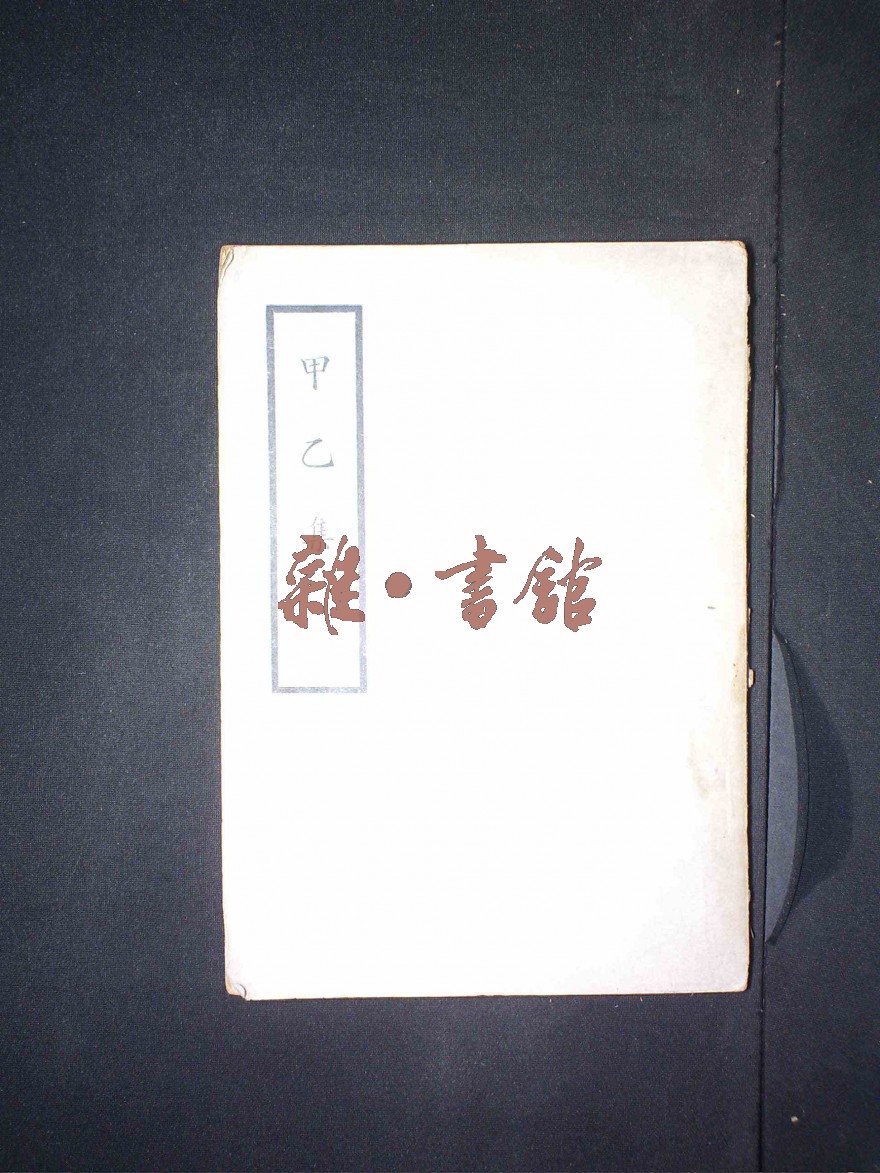 甲乙集
雜·書館